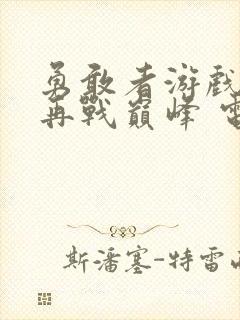 勇敢者游戏
再战巅峰
斯潘塞-特雷